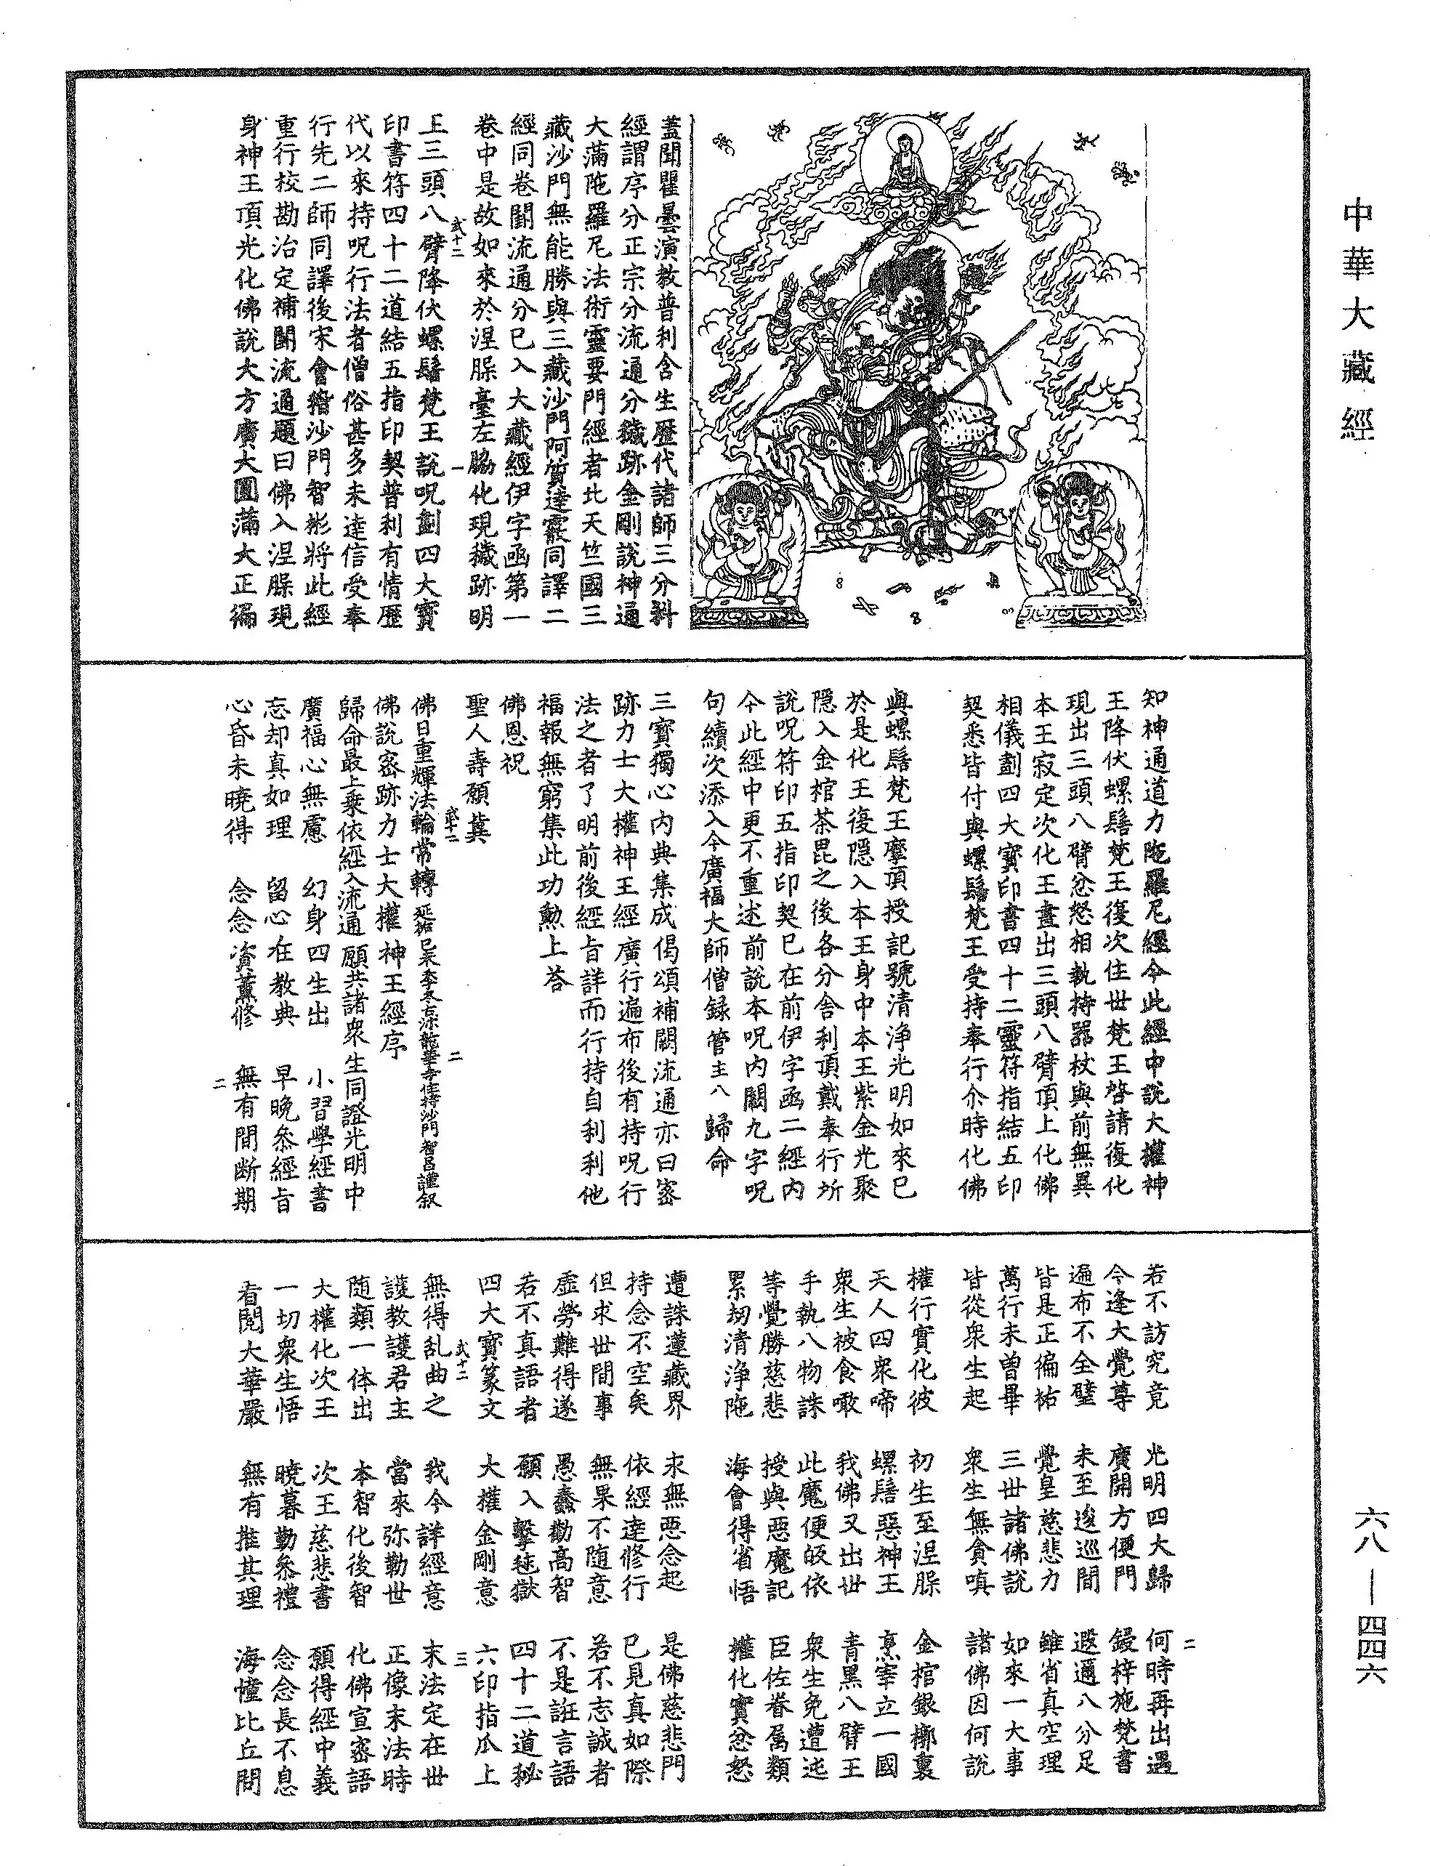 中華大藏經
蓋聞瞿曇演教普利含生歷代諸師三分科
經謂序分正宗分流通分穢跡金剛說神通
大滿陁羅尼法術靈要門經者北天竺國三
藏沙門無能勝與三藏沙門阿質達霰同譯二
經同卷闕流通分已入大藏經伊字函第一
卷中是故如來於涅槃臺左脇化現穢跡明
王三頭八臂降伏螺髻梵王說呪劃四大寶
印書符四十二道結五指印契普利有情歷
代以來持呪行法者僧俗甚多未達信受奉
行先二師同譯後宋會稽沙門智彬將此經
重行校勘治定補闕流通題曰佛入涅槃現
身神王頂光化佛說大方廣大圓滿大正徧
知神通道力陁羅尼經今此經中說大權神
王降伏螺髻梵王復次住世梵王啓請復化
現出三頭八臂忿怒相執持器杖與前無異
本王寂定次化王畫出三頭八臂頂上化佛
相儀劃四大寶印書四十二靈符指結五印
契悉皆付與螺髻梵王受持奉行介時化佛
與螺髻梵王摩頂授記號清淨光明如來已
於是化王復隱入本王身中本王紫金光聚
隱入金棺茶毘之後各分舍利頂戴奉行所
說呪符印五指印契已在前伊字函二經內
今此經中更不重述前說本呪內闕九字呪
句續次添入今廣福大師僧録管主八歸命
三寶獨心內典集成偈頌補闕流通亦曰密
跡力士大權神王經廣行遍布後有持呪行
法之者了明前後經旨詳而行持自利利他
福報無窮集此功勲上荅
佛恩祝
聖人壽願冀
佛日重輝法輪常轉延祐 龍華寺住持沙門智昌謹叙
佛說密跡力士大權神王經序
歸命最上乘依經入流通 願共諸衆生同證光明中
廣福心無慮 幻身四生出 小習學經書
忘却真如理 留心在教典 早晚叅經旨
心昏未曉得 念念資薰修 無有間斷期
若不訪究竟 光明四大歸 何時再出遇
今逢大覺尊 廣開方便門 鋟梓施梵書
遍布不全璧 未至逡巡間 遐邇八分足
皆是正徧祐 覺皇慈悲力 雖省真空理
萬行未曾畢 三世諸佛說 如來一大事
皆從衆生起 衆生無貪嗔 諸佛因何說
權行實化彼 初生至涅槃 金棺銀槨裏
天人四衆啼 螺髻惡神王 烹宰立一國
衆生被食噉 我佛又出世 青黑八臂王
手執八物誅 此魔便皈依 衆生免遭迍
等覺勝慈悲 授與惡魔記 臣佐眷属類
累劫清淨陁 海會得省悟 權化實忿怒
遭誅蓮藏界 求無惡念起 是佛慈悲門
持念不空矣 依經達修行 已見真如際
但求世間事 無果不随意 若不志誠者
虛勞難得遂 愚蠢勸高智 不是誑言語
若不真語者 願入擊毬獄 四十二道秘
四大寶篆文 大權金剛意 六印指爪上
無得乱曲之 我今詳經意 末法定在世
護教護君主 當來弥勒世 正像末法時
随類一体出 本智化後智 化佛宣密語
大權化次王 次王慈悲書 願得經中義
一切衆生悟 曉暮勤叅禮 念念長不息
看閲大華嚴 無有推其理 海幢比丘問
六八—四四六